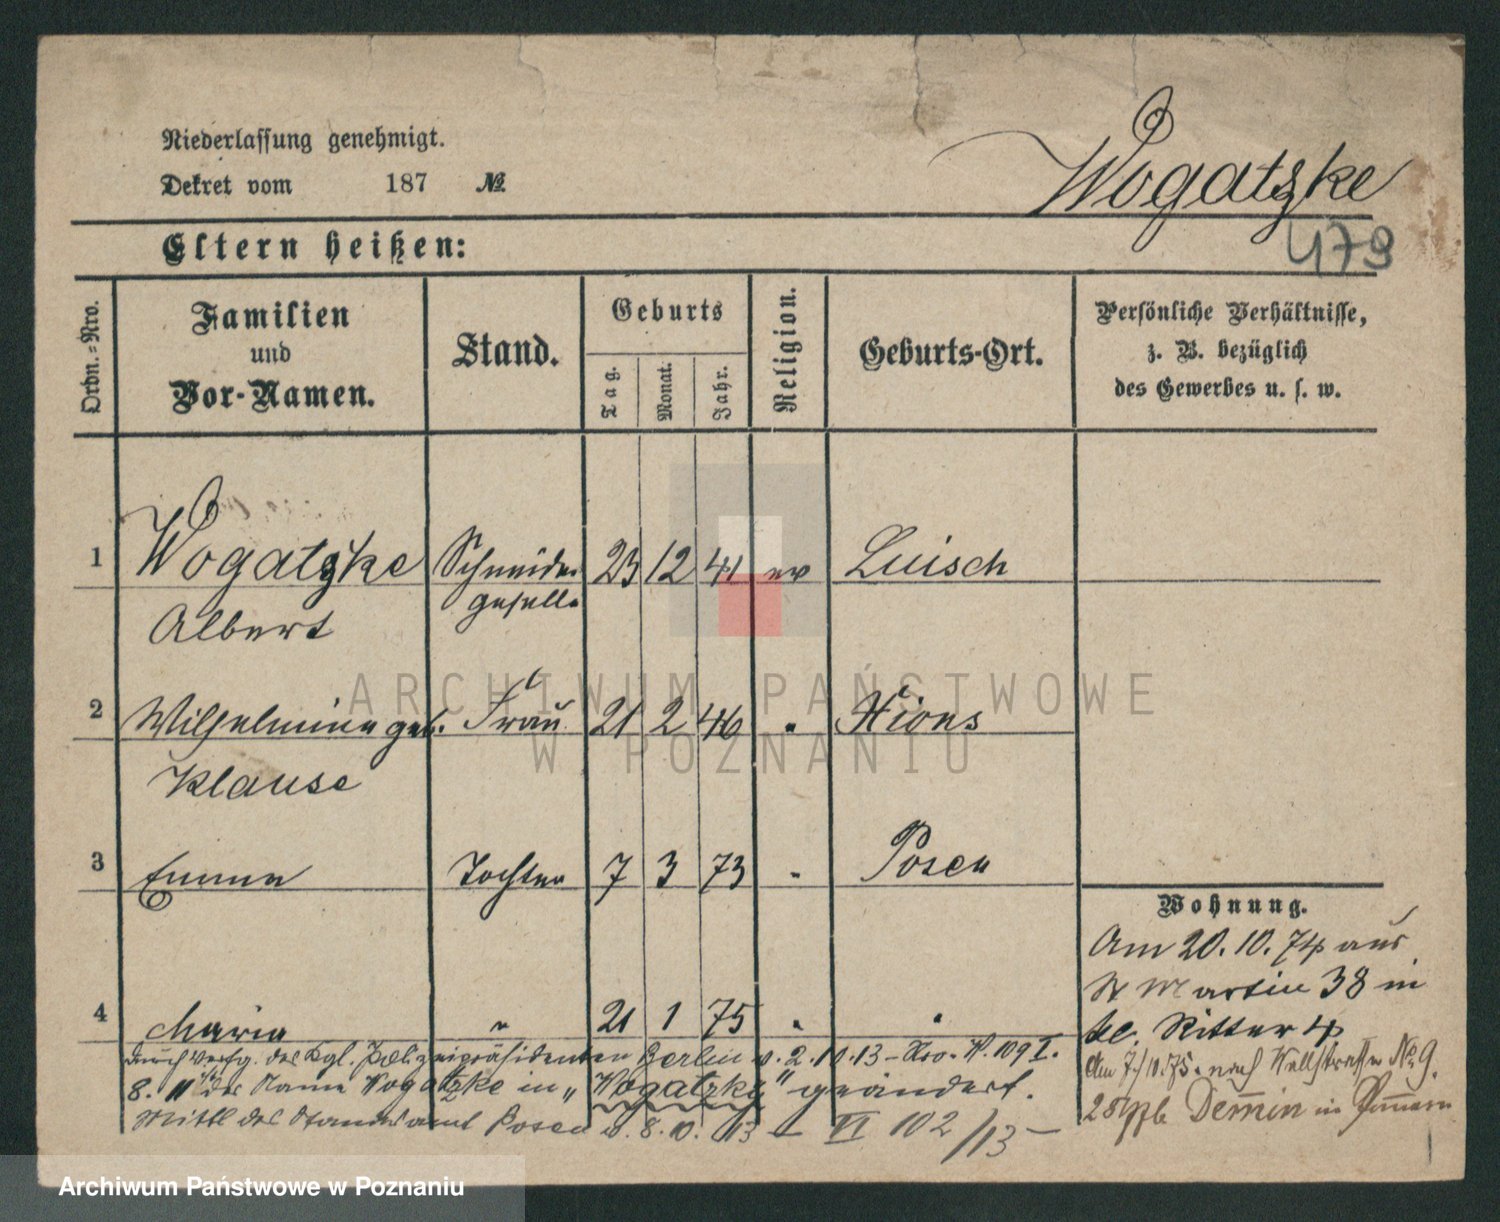 Niederlassung genehmigt.
Dekret vom 187 №
Wogatzke
479
Eltern heißen:
Ordn.-Nro.
Familien
und
Vor-Namen.
Stand.
Geburts
Tag.
Monat.
Jahr.
Religion.
Geburts-Ort.
Persönliche Verhältnisse,
z. B. bezüglich
des Gewerbes u. s. w.
1 Wogatzke Schneider 23 12 41 ev Luisch
Albert gesell.
2 Wilhelmine geb. Frau 21 2 46 " Xions
Klause
3 Emma Tochter 7 3 73 " Posen
Wohnung.
Am 20.10.74 aus
St Martin 38 in
kl. Ritter 4
Am 7/10.75 nach Wallstrasse No 9.
Demin in Pommern
4 Maria " 21 1 75 " "
durch Verfg. des Kgl. Polizeipräsidenten Berlin v. 2. 13 - Nro. W. 109 I.
8. 11 der Name Wogatzke in „Wogatzky" geändert.
Mittl des Standesamt Posen v. 8. 10. 13 — VI 102/13 —
ARCHIWUM PAŃSTWOWE
W POZNANIU
Archiwum Państwowe w Poznaniu